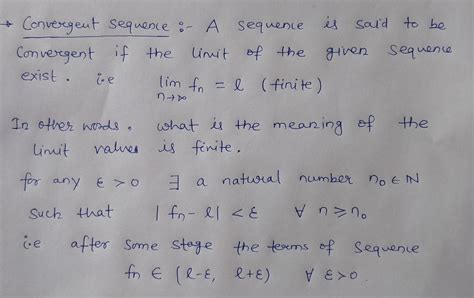 → Convergent Sequence :- A sequence is said to be
Convergent if the limit of the given sequence
exist. i.e lim fn = l (finite)
n→∞
In other words. what is the meaning of the
limit values is finite.
for any ε > 0 ∃ a natural number n₀ ∈ N
such that |fn - l| < ε ∀ n ≥ n₀
i.e after some stage the terms of sequence
fn ∈ (l-ε, l+ε) ∀ ε>0.